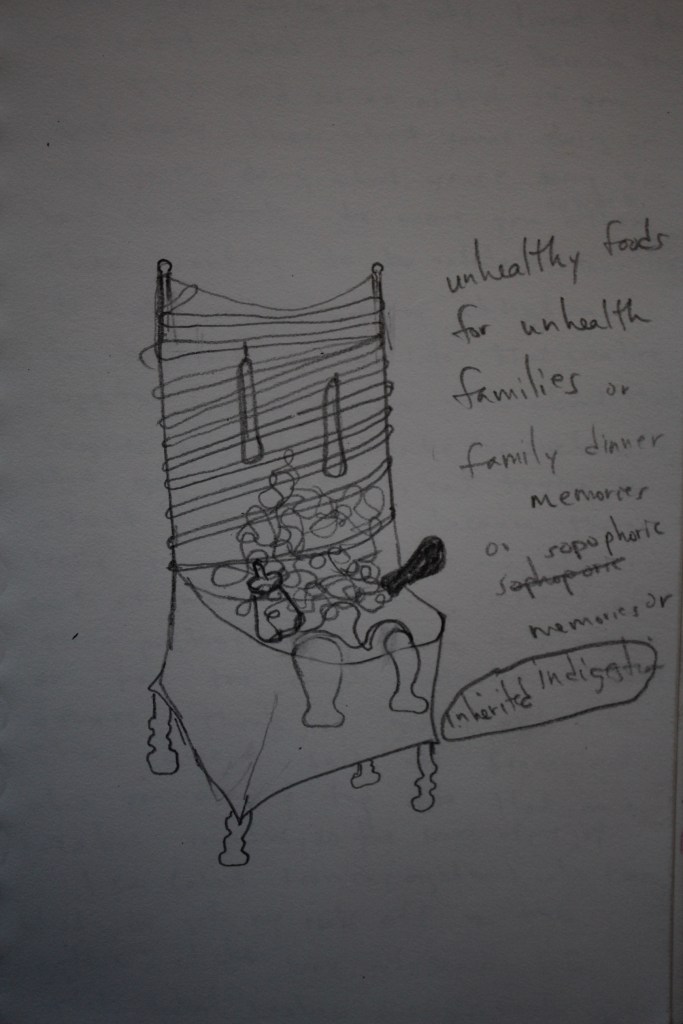 unhealthy foods
for unhealth
families or
family dinner
memories
or sopophoric
sophoporic
memories or
Inherited indigestion